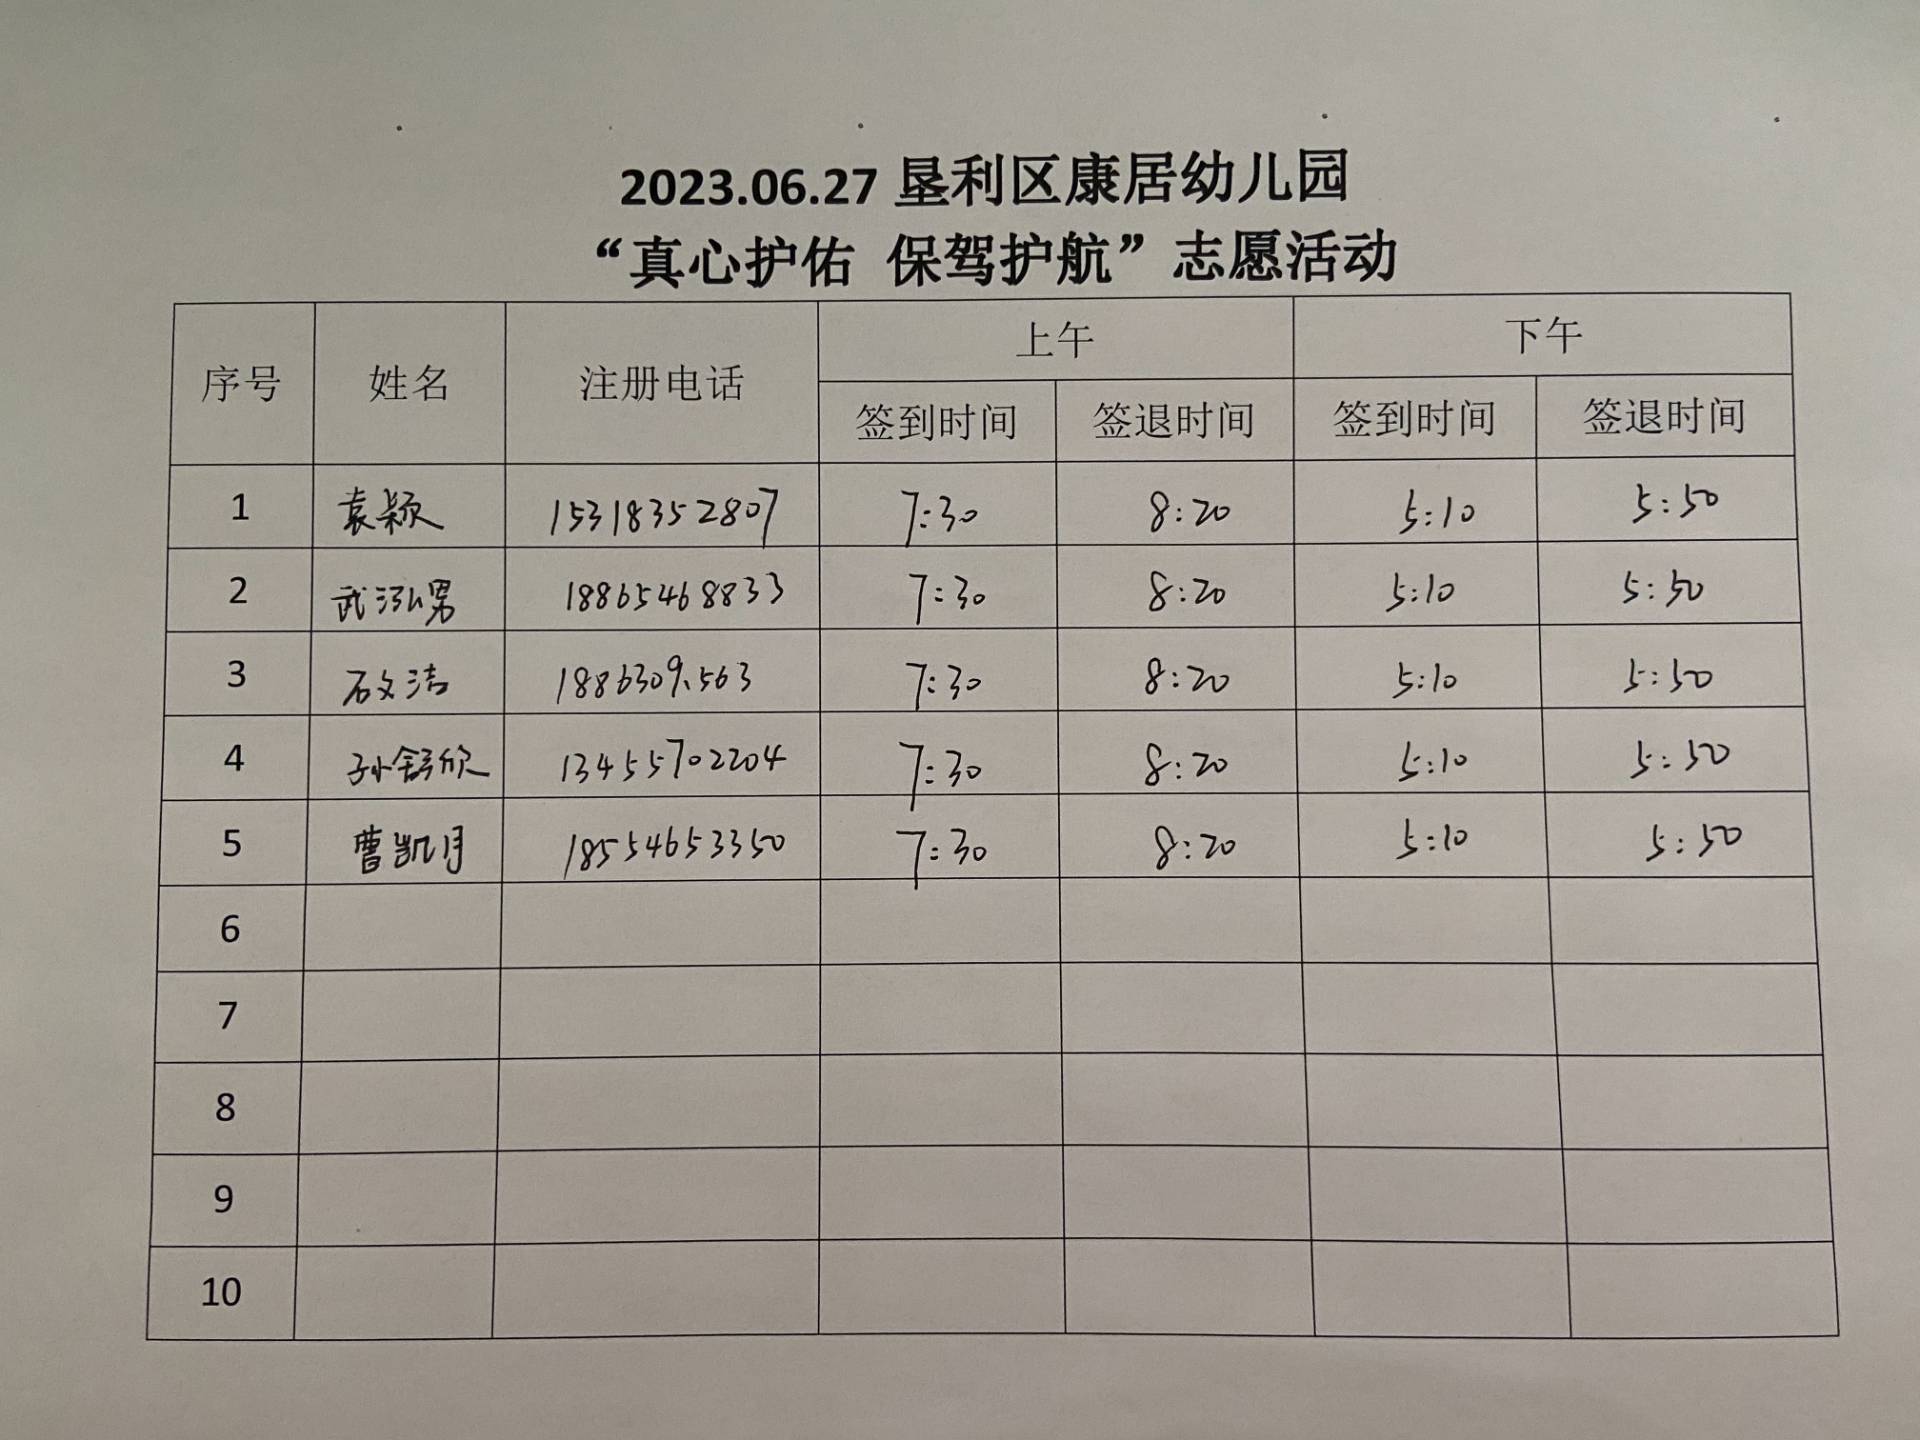 2023.06.27 垦利区康居幼儿园
“真心护佑 保驾护航”志愿活动
序号 姓名 注册电话 上午 下午
签到时间 签退时间 签到时间 签退时间
1 袁颖 15318352807 7:30 8:20 5:10 5:50
2 武泓男 18865468833 7:30 8:20 5:10 5:50
3 石文洁 7:30 8:20 5:10 5:50
4 孙舒欣 13455702204 7:30 8:20 5:10 5:50
5 曹凯月 18554653350 7:30 8:20 5:10 5:50
6
7
8
9
10